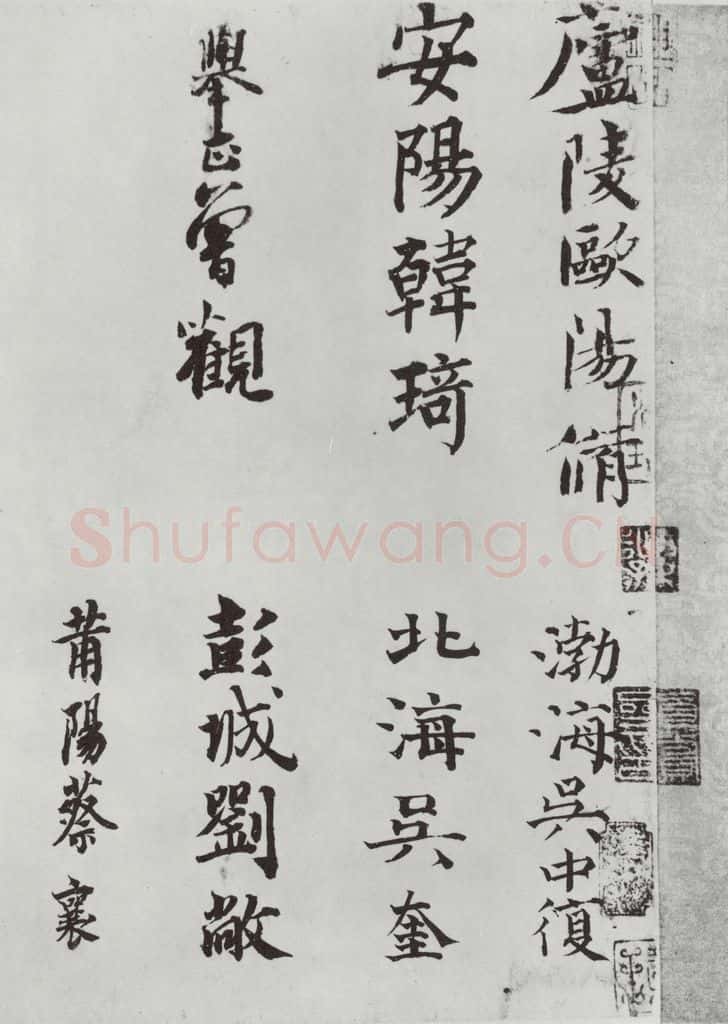 廬陵歐陽脩
渤海吳中復
安陽韓琦
北海吳奎
舉正曾觀
彭城劉敞
莆陽蔡襄
Shufawang.CN